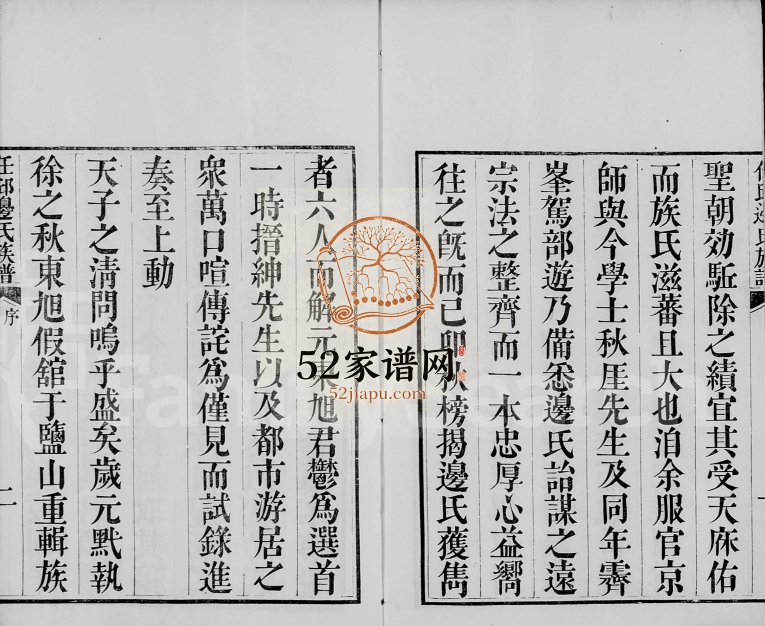 任邱邊氏族譜
聖朝効駈除之績宜其受天庥佑
而族氏滋蕃且大也洎余服官京
師與今學士秋厓先生及同年霽
峯駕部遊乃備悉邊氏詒謀之遠
宗法之整齊而一本忠厚心益嚮
往之旣而己卯秋榜揭邊氏獲雋
者六人而解元東旭君鬱爲選首
一時搢紳先生以及都市游居之
衆萬口喧傳詫爲僅見而試錄進
奏至上動
天子之清問嗚乎盛矣歲元默執
徐之秋東旭假舘于鹽山重輯族
任邱邊氏族譜 序 二
52家谱网
52jiapu.com